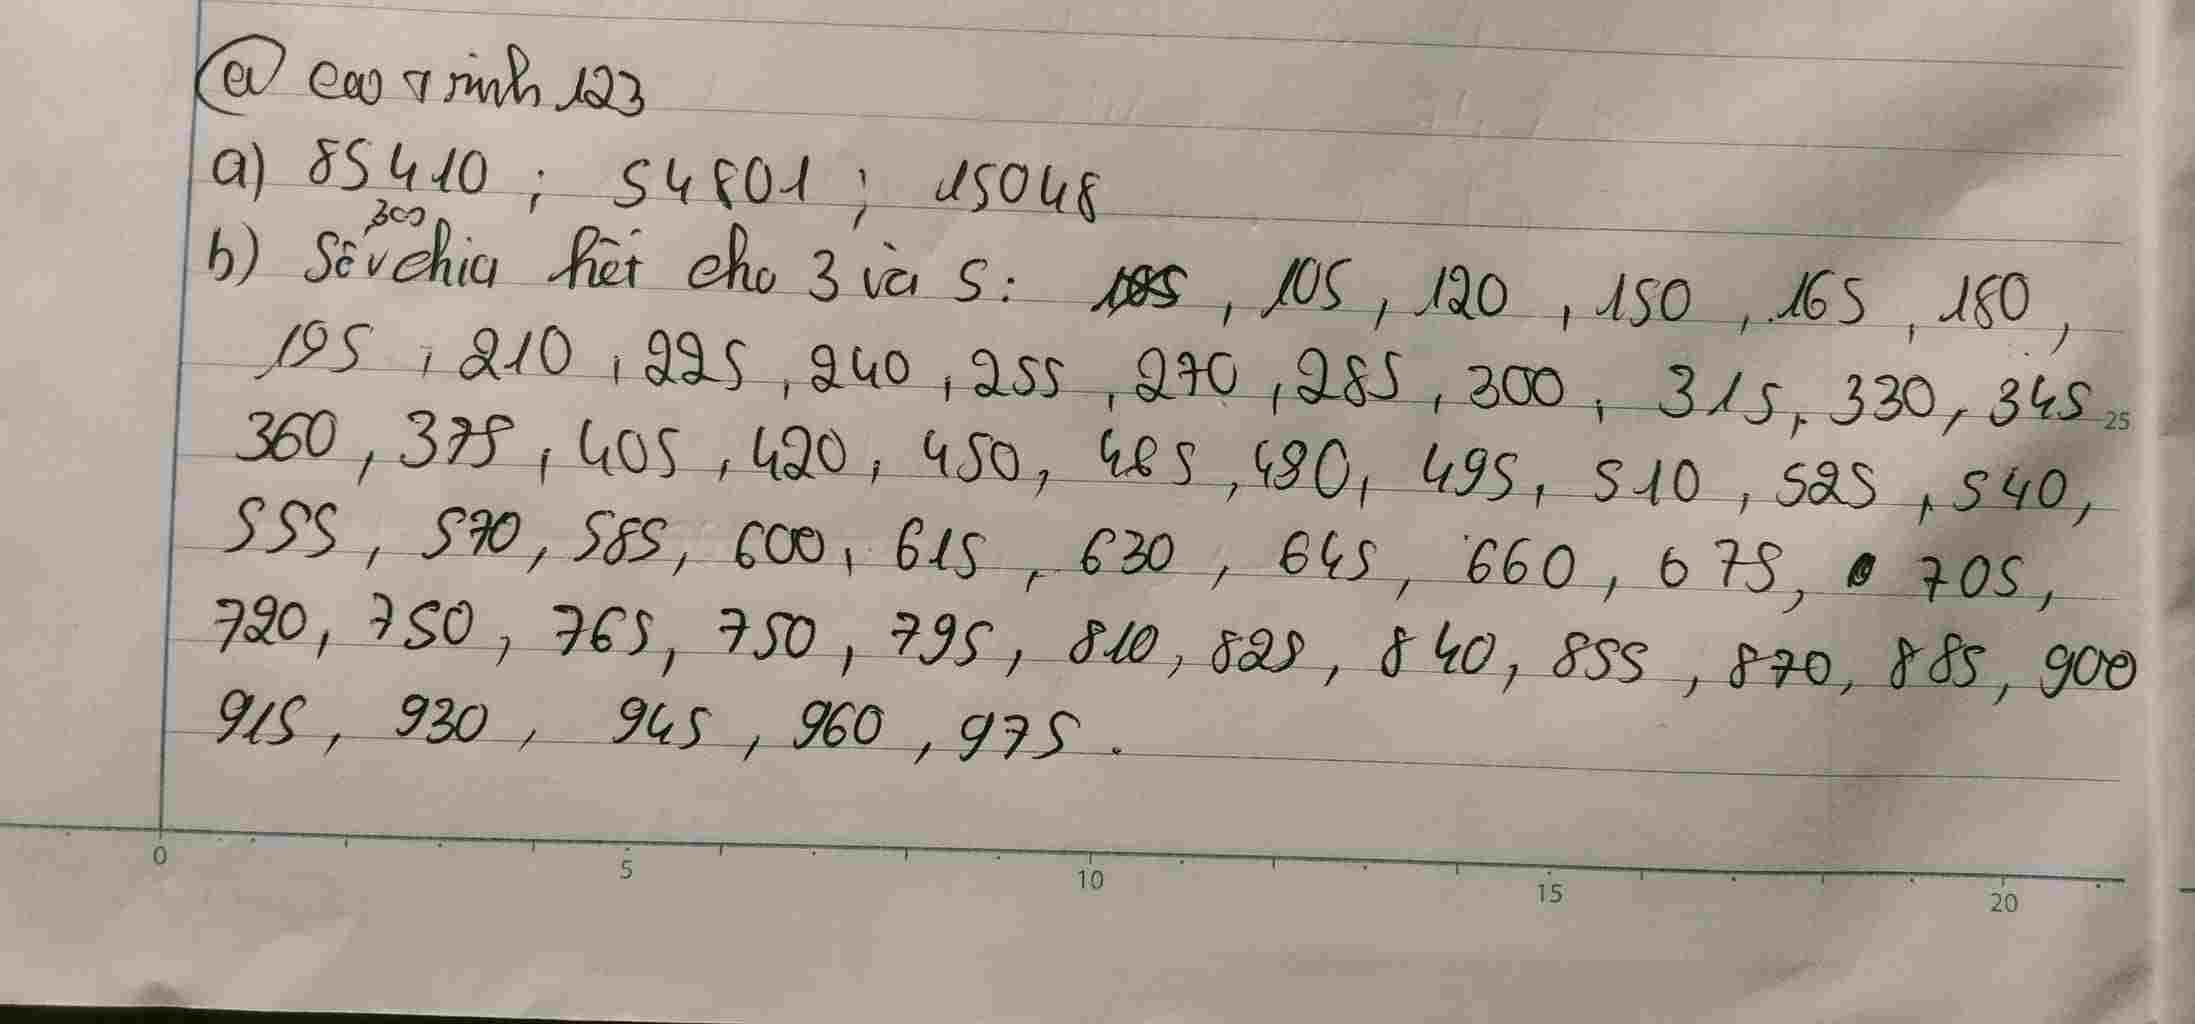 @ cao trinh 123
a) 85410 ; 54801 ; 15048
300
b) Số chia hết cho 3 và 5: 105, 105, 120, 150, 165, 180,
195, 210, 225, 240, 255, 270, 285, 300, 315, 330, 345
25
360, 375, 405, 420, 450, 465, 480, 495, 510, 525, 540,
555, 570, 585, 600, 615, 630, 645, 660, 675, 705,
720, 750, 765, 750, 795, 810, 825, 840, 855, 870, 885, 900
915, 930, 945, 960, 975.
0 5 10 15 20